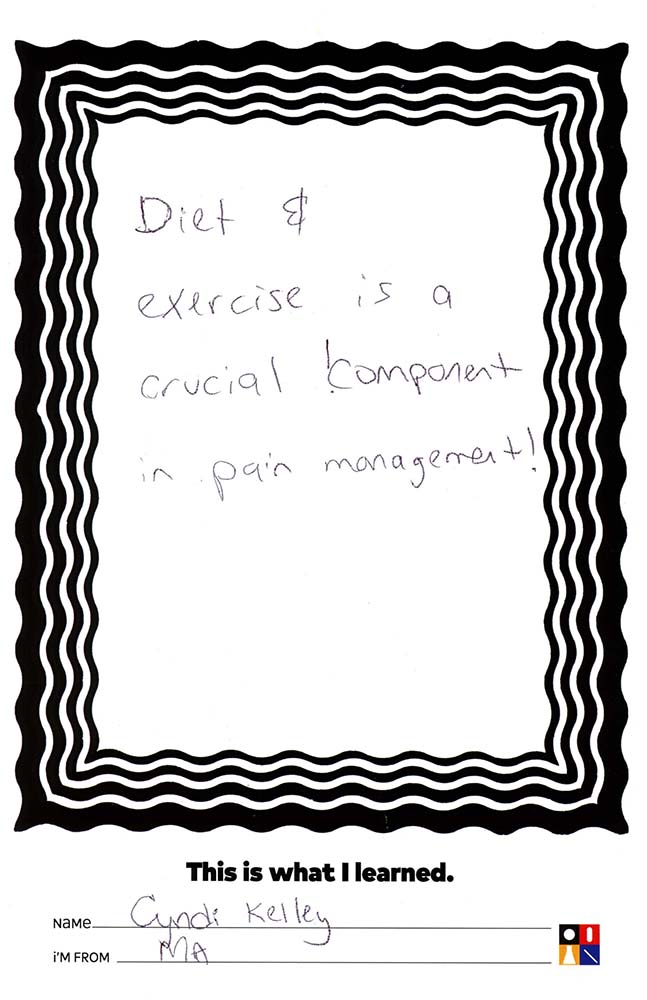 Diet &
exercise is a
crucial component
in pain management!
This is what I learned.
NaMe Cyndi Kelley
i'M FROM MA